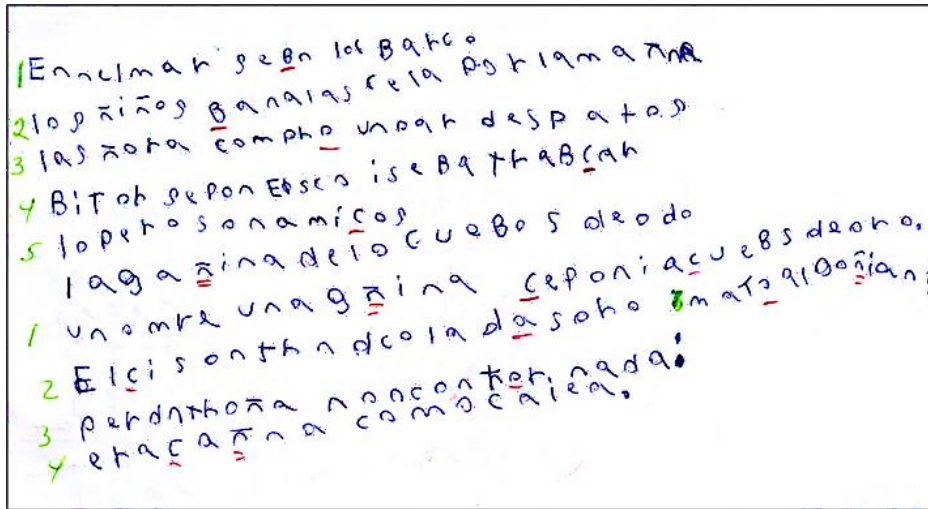 1 Ennelmar seBn los Barco
2 los niños Banalas cela porlamañna
3 las ñora compro unpar despatos
4 BiTor sepon Eoscn iseBa traBcar
5 loperosonamicos
lagañina delo cueBos deodo
1 unomre unagñina ceponia cueBs deoro.
2 Elcisontrnd cola dasoro matoalgoñian,
3 perdntrona nonconter nada.
4 eracañna comocalea.